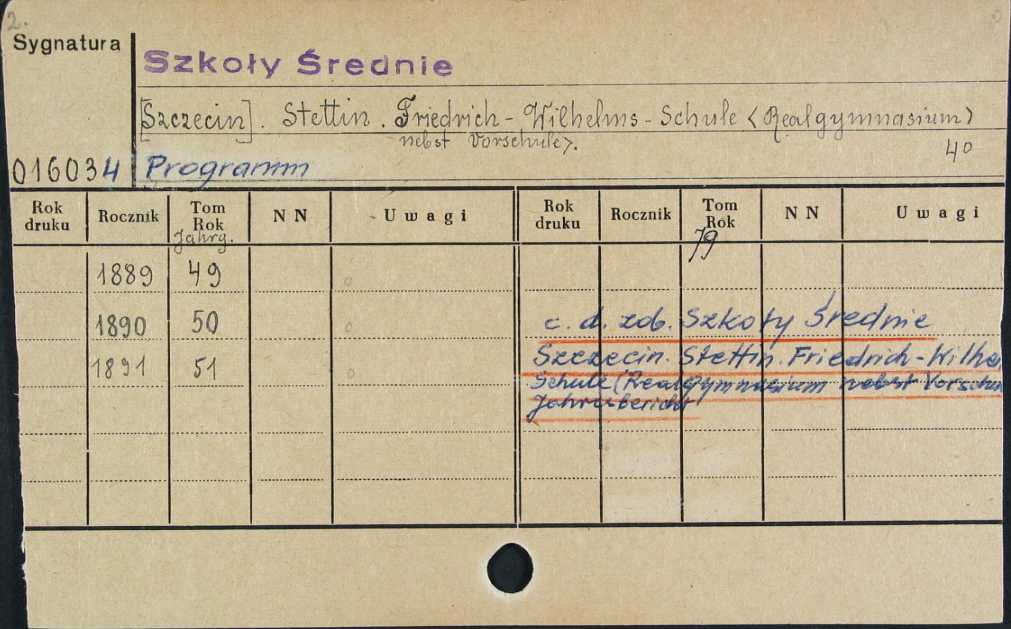 2.
Sygnatura
Szkoły Średnie
[Szczecin]. Stettin. Friedrich-Wilhelms-Schule <Realgymnasium
nebst Vorschule>.
4°
016034 Programm
Rok druku Rocznik Tom Rok NN Uwagi Rok druku Rocznik Tom Rok NN Uwagi
Jahrg.
1889 49
1890 50
1891 51
c. d. zob. Szkoły Średnie
Szczecin. Stettin. Friedrich-Wilhe
Schule (Realgymnasium nebst Vorschu
Jahresbericht